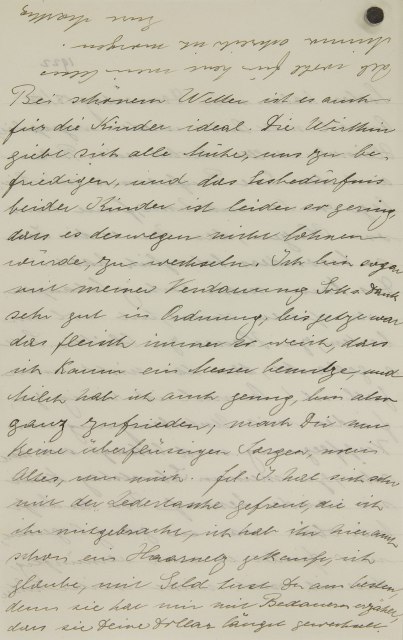 Bei schönem Wetter ist es auch
für die Kinder ideal. Die Wirthin
giebt sich alle Mühe, uns zu be-
friedigen, und das Eisbedürfnis
beider Kinder ist leider so gering,
dass es deswegen nicht lohnen
würde, zu wechseln. Ich bin sogar
mit meiner Verdauung Gotts Dank
sehr gut in Ordnung, bis jetzt war
das Fleisch immer so weich, dass
ich kaum ein Messer benütze, und
Milch hab ich auch genug, bin also
ganz zufrieden, mach Dir nur
keine überflüssigen Sorgen, mein
Altes, um mich. Frl. J. hat sich sehr
mit der Ledertasche gefreut, die ich
ihr mitgebracht, ich hab ihr hier auch
schon ein Haarnetz gekauft, ich
glaube, mit Geld tust Du am besten,
denn sie hat mir mit Bedauern erzählt,
dass sie Deine Dollar längst gewechselt
Eure Martha
Anna schreibt morgen.